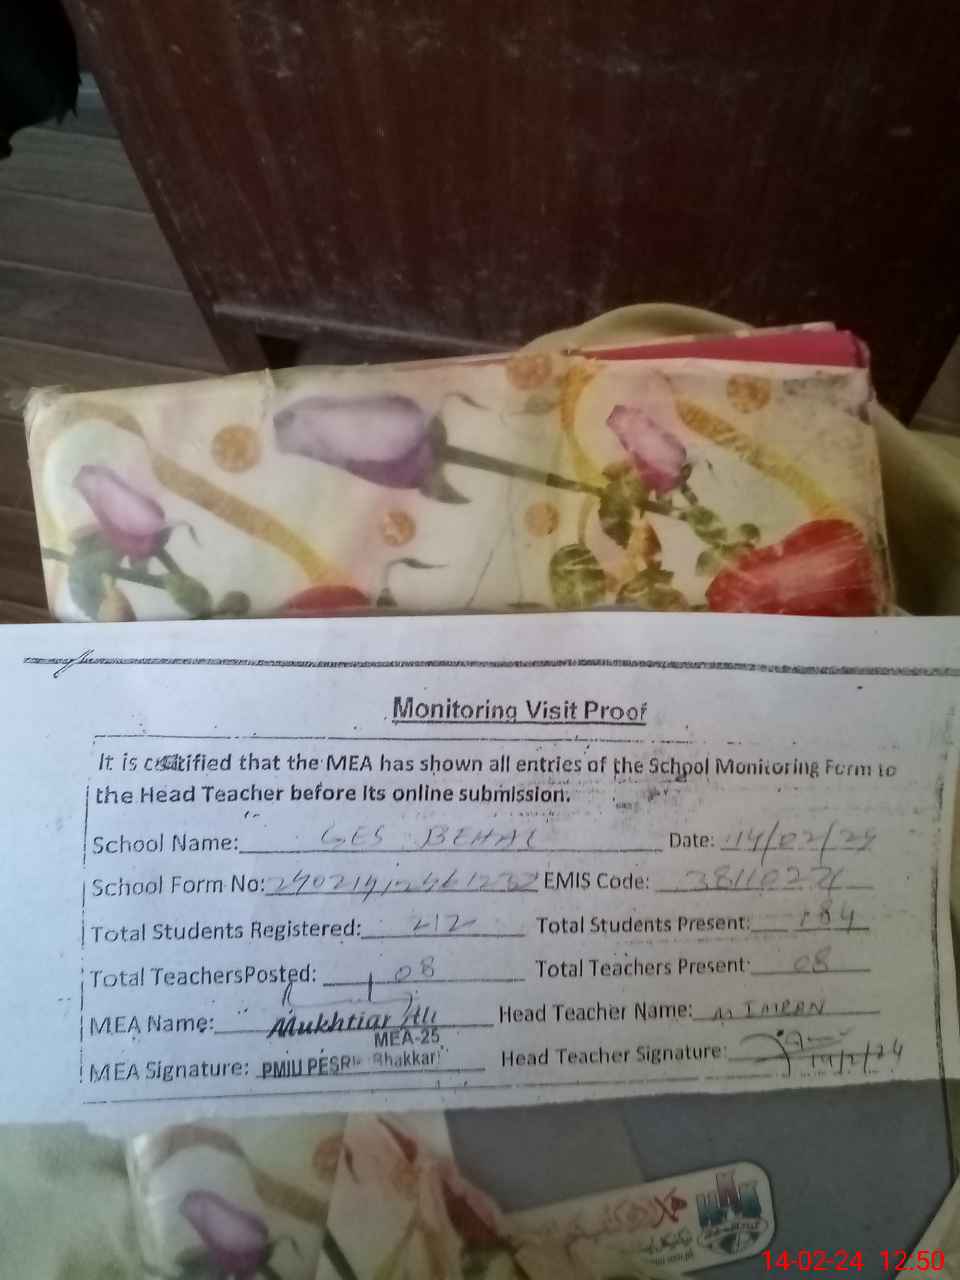 Monitoring Visit Proof
It is certified that the MEA has shown all entries of the School Monitoring Form to
the Head Teacher before its online submission.
School Name: GES BEHAL Date: 14/02/24
School Form No: EMIS Code:
Total Students Registered: 212 Total Students Present: 184
Total Teachers Posted: 08 Total Teachers Present: 08
MEA Name: Mukhtiar Ali Head Teacher Name: M IMRAN
MEA-25
MEA Signature: PMIU PESRP Bhakkar Head Teacher Signature:
14/2/24
HKK
14-02-24 12:50